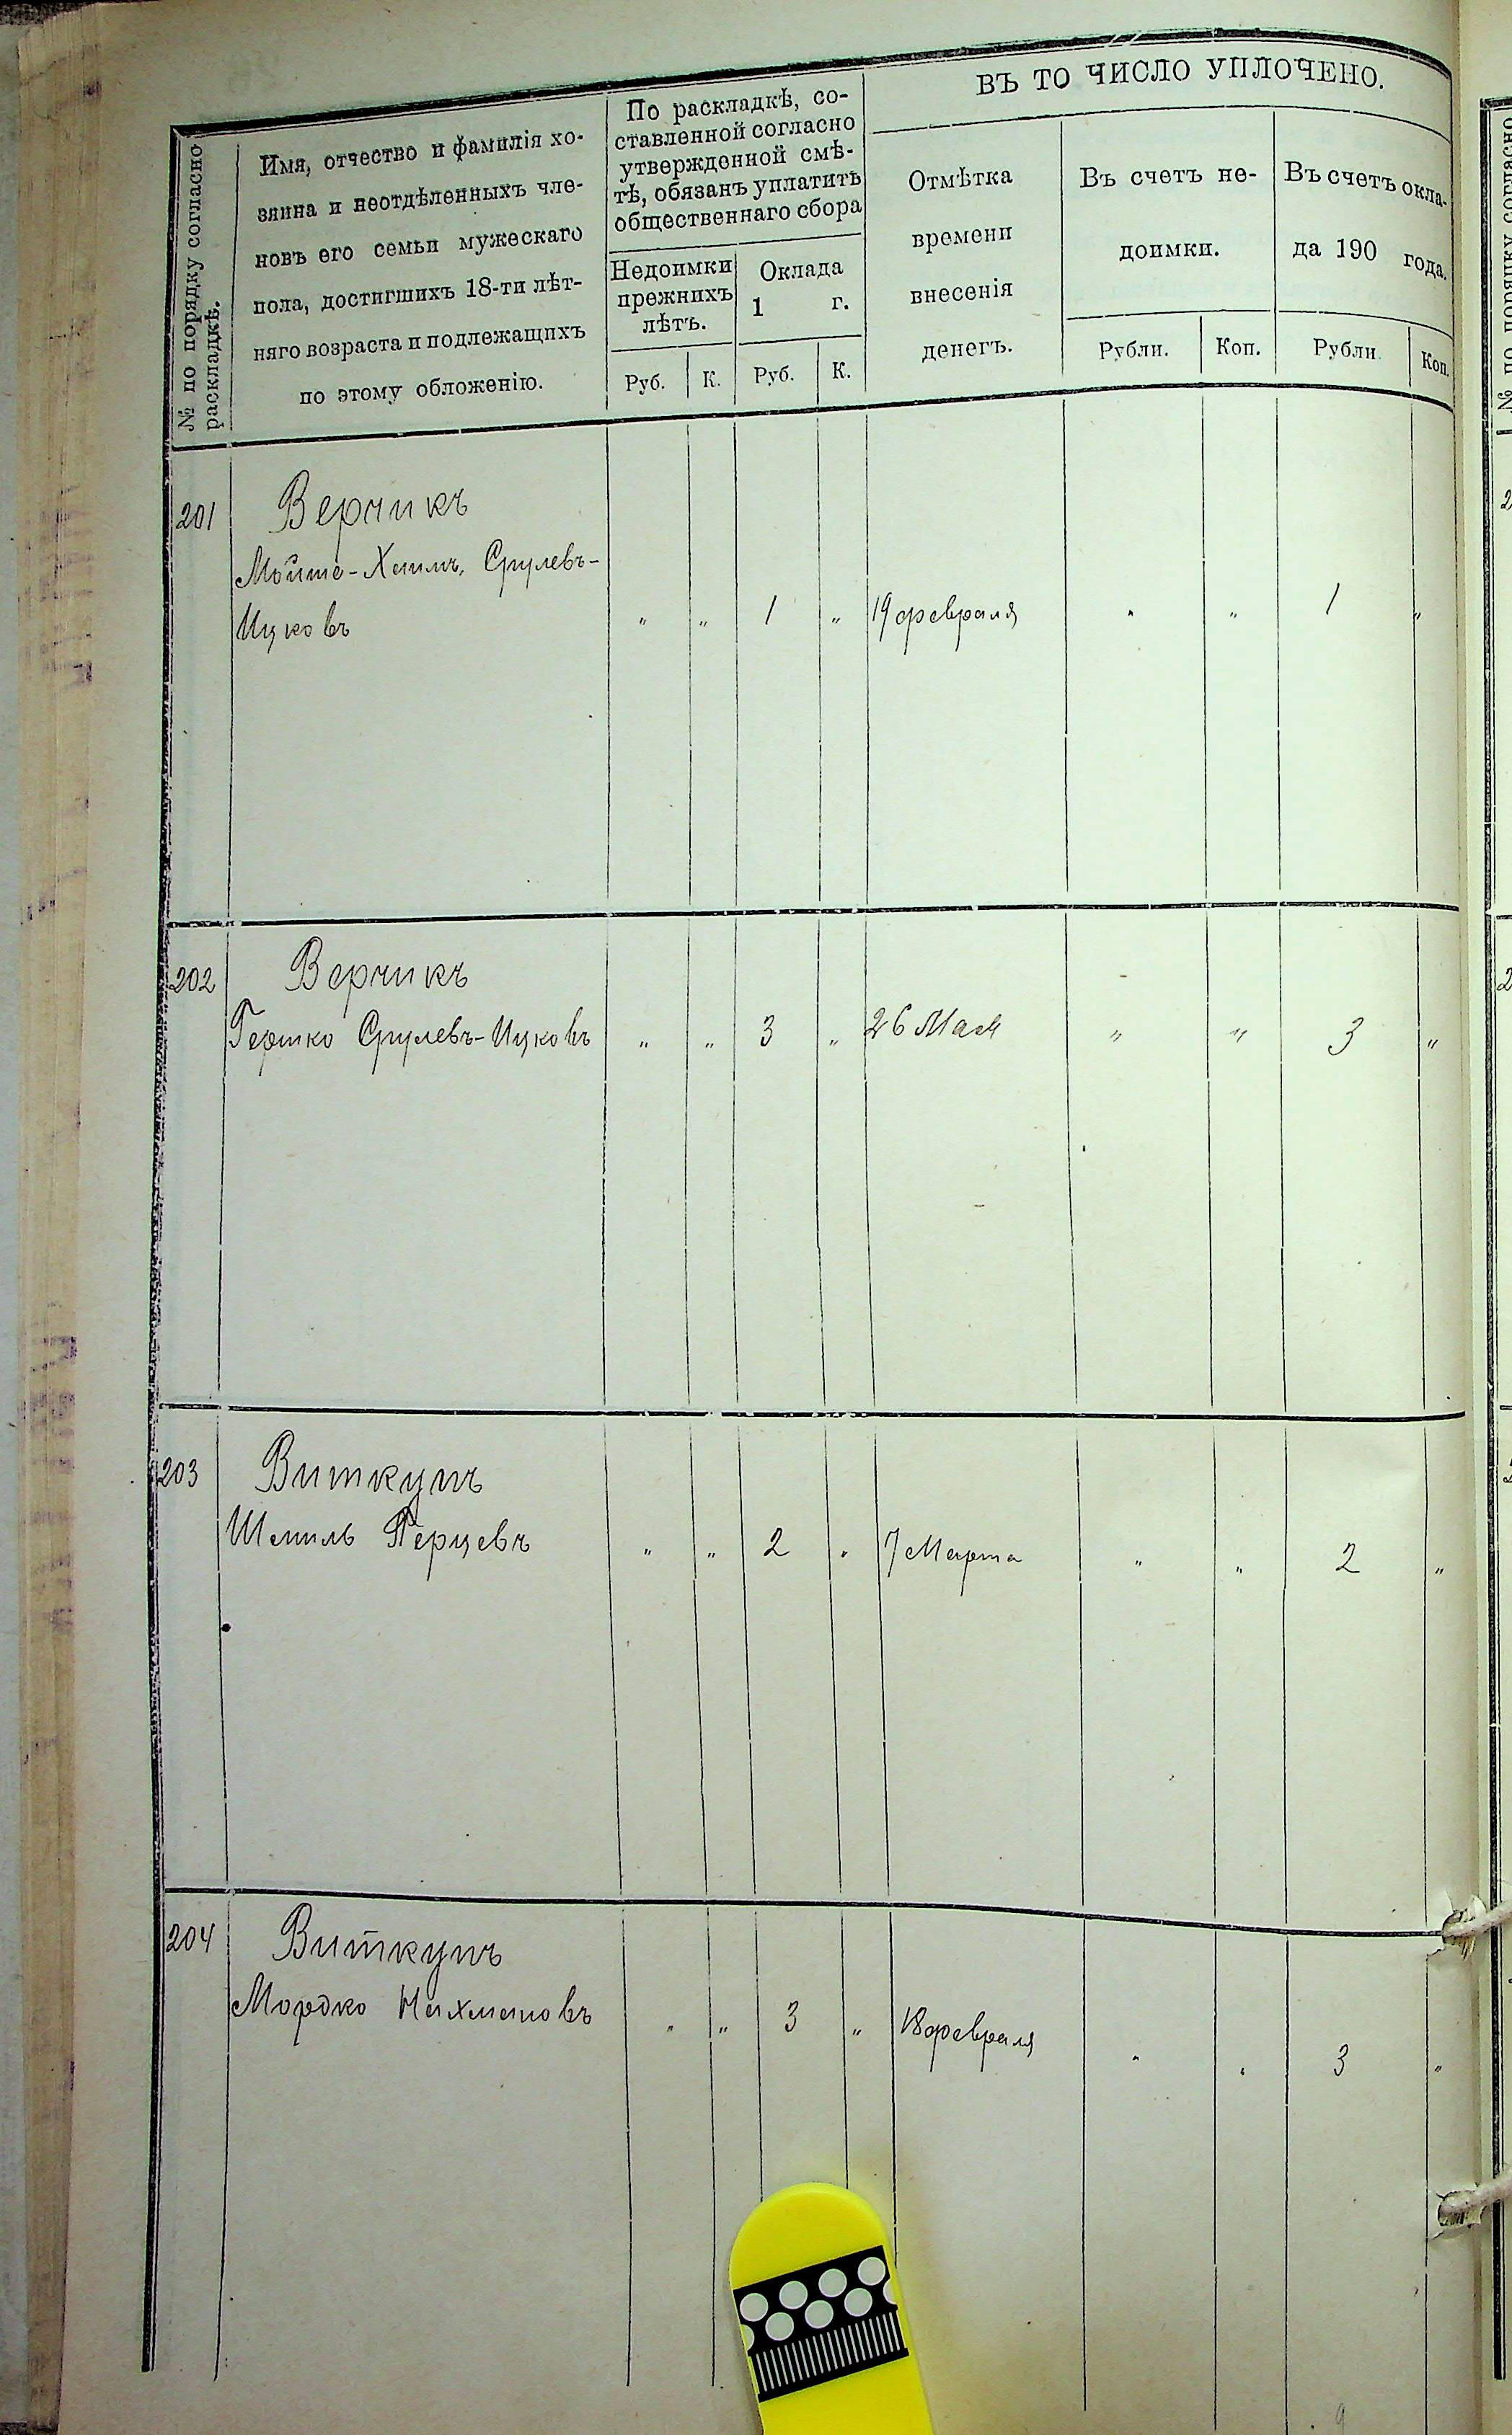 ВЪ ТО ЧИСЛО УПЛОЧЕНО.
№ по порядку согласно
раскладкѣ.
Имя, отчество и фамилія хо-
зяина и неотдѣленныхъ чле-
новъ его семьи мужескаго
пола, достигшихъ 18-ти лѣт-
няго возраста и подлежащихъ
по этому обложенію.
По раскладкѣ, со-
ставленной согласно
утвержденной смѣ-
тѣ, обязанъ уплатить
общественнаго сбора
Недоимки
прежнихъ
лѣтъ.
Оклада
1 г.
Руб. К. Руб. К.
Отмѣтка
времени
внесенія
денегъ.
Въ счетъ не-
доимки.
Рубли. Коп.
Въ счетъ окла-
да 190 года.
Рубли. Коп.
201 Верчикъ
Мойше-Хаимъ, Срулевъ-
Ицковъ „ „ 1 „ 19 февраля „ „ 1 „
202 Верчикъ
Гершко Срулевъ-Ицковъ „ „ 3 „ 26 Мая „ „ 3 „
203 Виткупъ
Шмиль Перцевъ „ „ 2 „ 7 Марта „ „ 2 „
204 Виткупъ
Мордко Нахмановъ „ „ 3 „ 18 февраля „ „ 3 „